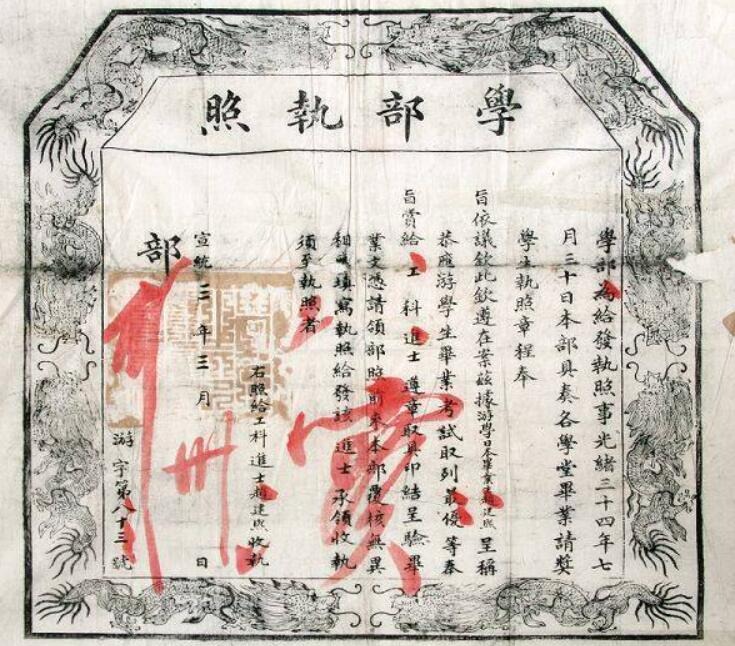 學部執照
學部為給發執照事光緒三十四年七
月三十日本部具奏各學堂畢業請獎
學生執照章程奉
旨依議欽此欽遵在案茲據游學日本畢業生趙建熙呈稱
恭應游學生畢業考試取列最優等奉
旨賞給工科進士遵章取具印結呈驗畢
業文憑請領部照前來本部覆核無異
相應填寫執照給發該進士承領收執
須至執照者
右照給工科進士趙建熙收執
宣統三年三月 日
部
游字第八十三號
實
卅